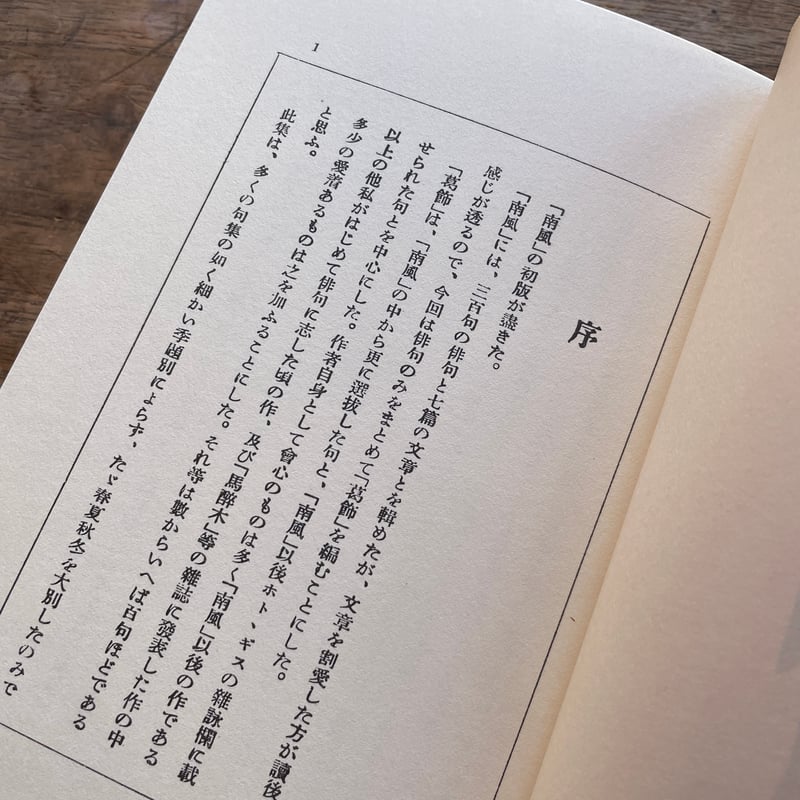 1
序
「南風」の初版が盡きた。
「南風」には、三百句の俳句と七篇の文章とを輯めたが、文章を割愛した方が讀後
感じが透るので、今回は俳句のみをまとめて「葛飾」を編むことにした。
「葛飾」は、「南風」の中から更に選拔した句と、「南風」以後ホトヽギスの雜詠欄に載
せられた句とを中心にした。作者自身として會心のものは多く「南風」以後の作である
以上の他私がはじめて俳句に志した頃の作、及び「馬醉木」等の雜誌に發表した作の中
多少の愛着あるものは之を加ふることにした。それ等は數からいへば百句ほどである
と思ふ。
此集は、多くの句集の如く細かい季題別によらず、たゞ春夏秋冬を大別したのみで